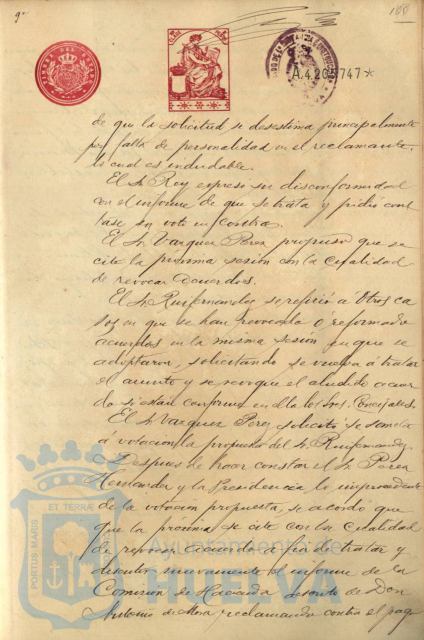 9ª
188
TIMBRE DEL ESTADO
A.4.20 747*
de que la solicitud se desestima principalmente
por falta de personalidad en el reclamante,
lo cual es indudable.
El Sr. Rey expresó su disconformidad
con el informe de que se trata y pidió cons
tase su voto en contra.
El Sr. Vazquez Perez propuso que se
cite la próxima sesión con la cualidad
de revocar acuerdos.
El Sr. Ruifernandez se refirió á otros ca
sos en que se han revocado ó reformado
acuerdos en la misma sesión en que se
adoptaron, solicitando se vuelva á tratar
el asunto y se revoque el aludido acuer
do si están conformes en ello los Sres. Concejales.
El Sr. Vazquez Perez solicita se someta
á votación la propuesta del Sr. Ruifernandez.
Despues de hacer constar el Sr. Perez
Hernandez y la Presidencia lo improcedente
de la votación propuesta, se acordó que
que la próxima se cite con la cualidad
de revocar acuerdo a fin de tratar y
discutir nuevamente el informe de la
Comision de Hacienda de Don
Antonio de Mora reclamando contra el pago
PORTUS MARIS ET TERRAE
Ayuntamiento de
HUELVA